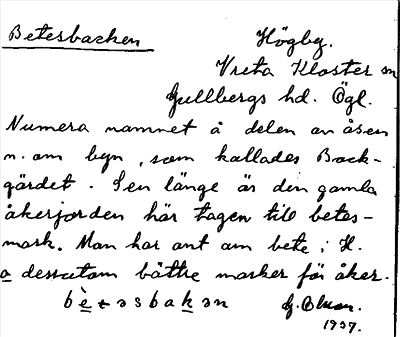 Betesbacken
Högby.
Vreta Kloster sn
Gullbergs hd. Ögl.
Numera namnet å delen av åsen
n. om byn, som kallades Back-
gärdet. Sen länge är den gamla
åkerjorden här tagen till betes-
mark. Man har ont om bete i H.
o dessutom bättre marker för åker.
bè̱t̶əsbaḵən
G. Olson.
1937.